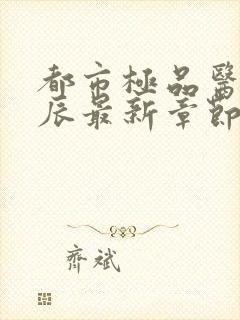 都市極品醫
辰最新章節
齊斌